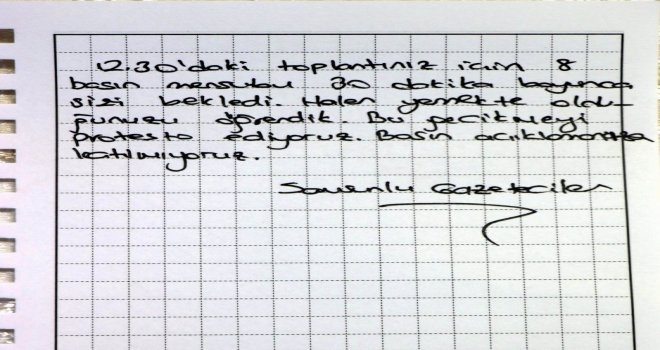 12.30'daki toplantınız için 8
basın mensubu 30 dakika boyunca
sizi bekledi. Halen yemekte oldu-
ğunuzu öğrendik. Bu gecikmeyi
protesto ediyoruz. Basın açıklamanıza
katılmıyoruz.
Sorumlu Gazeteciler